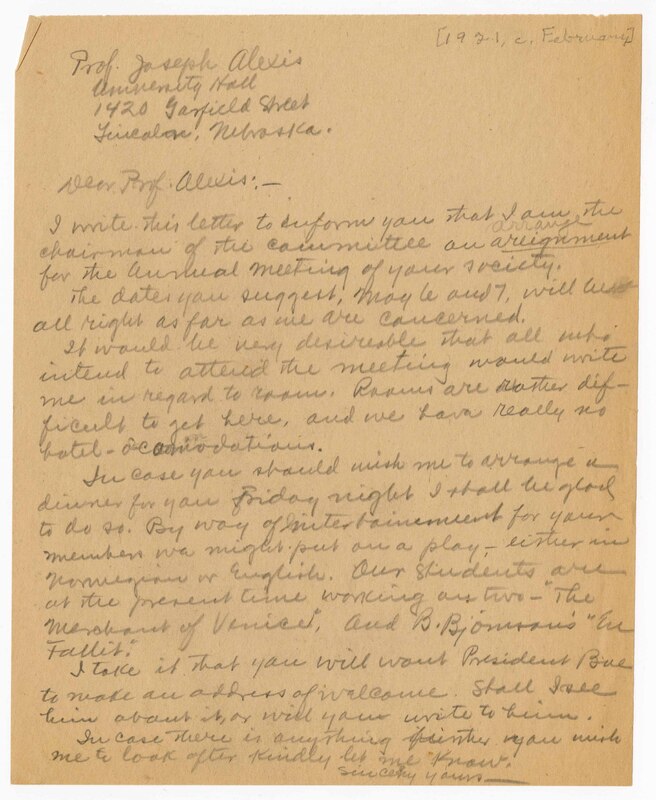 [1921, c. February]
Prof. Joseph Alexis
University Hall
1420 Garfield Street
Lincoln, Nebraska.
Dear Prof. Alexis:-
I write this letter to inform you that I am the
chairman of the committee on areignment
arrange
for the Annual Meeting of your society.
The dates you suggest, May 6 and 7, will be
all right as far as we are concerned.
It would be very desireable that all who
intend to attend the meeting would write
me in regard to room. Rooms are rather dif-
ficult to get here, and we have really no
hotel-acomodations.
In case you should wish me to arrange a
dinner for you Friday night I shall be glad
to do so. By way of intertainment for your
members we might put on a play, either in
Norwegian or English. Our students are
at the present time working on two - "The
Merchant of Venice", and B. Bjørnsons "En
Fallit".
I take it that you will want President Boe
to make an address of welcome. Shall I see
him about it, or will you write to him.
In case there is anything further you wish
me to look after kindly let me know.
Sincerly yours-